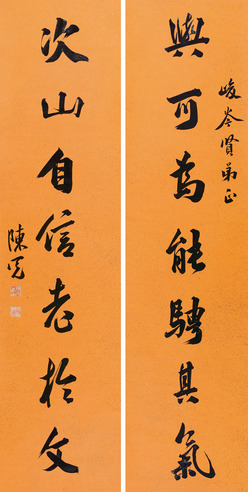 與可為能騁其氣
峻岑賢弟正
次山自信老於文
陳冕